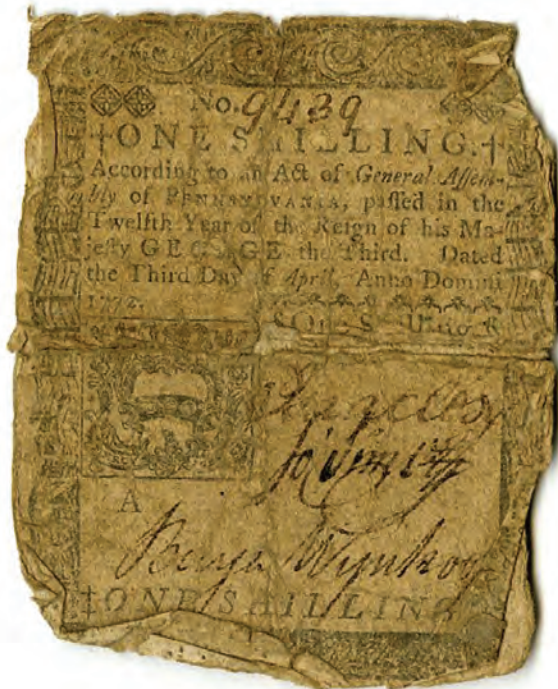 No. 9439
‡ONE SHILLING.‡
According to an Act of General Assem-
bly of PENNSYLVANIA, paſſed in the
Twelfth Year of the Reign of his Ma-
jeſty GEORGE the Third. Dated
the Third Day of April, Anno Domini
1772.
One Shilling
A
Benja Wynkoop
‡ONE SHILLING